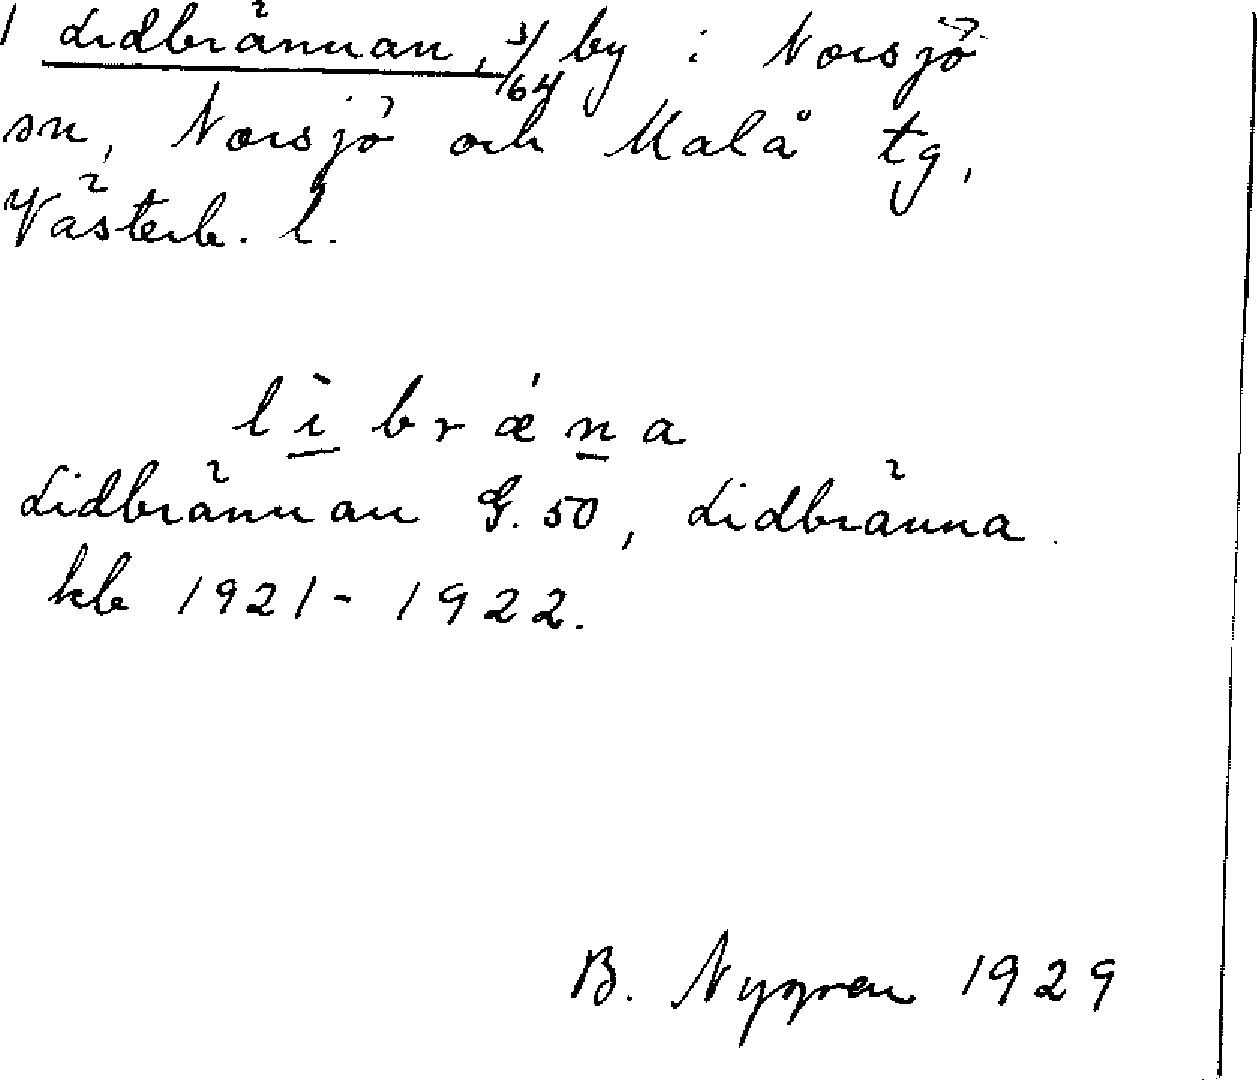 1 Lidbrännan, 3/64 by i Norsjö
sn, Norsjö och Malå tg,
Västerb. l.
lìbrǽna
Lidbrännan G. 50, Lidbränna
kb 1921-1922.
B. Nygren 1929